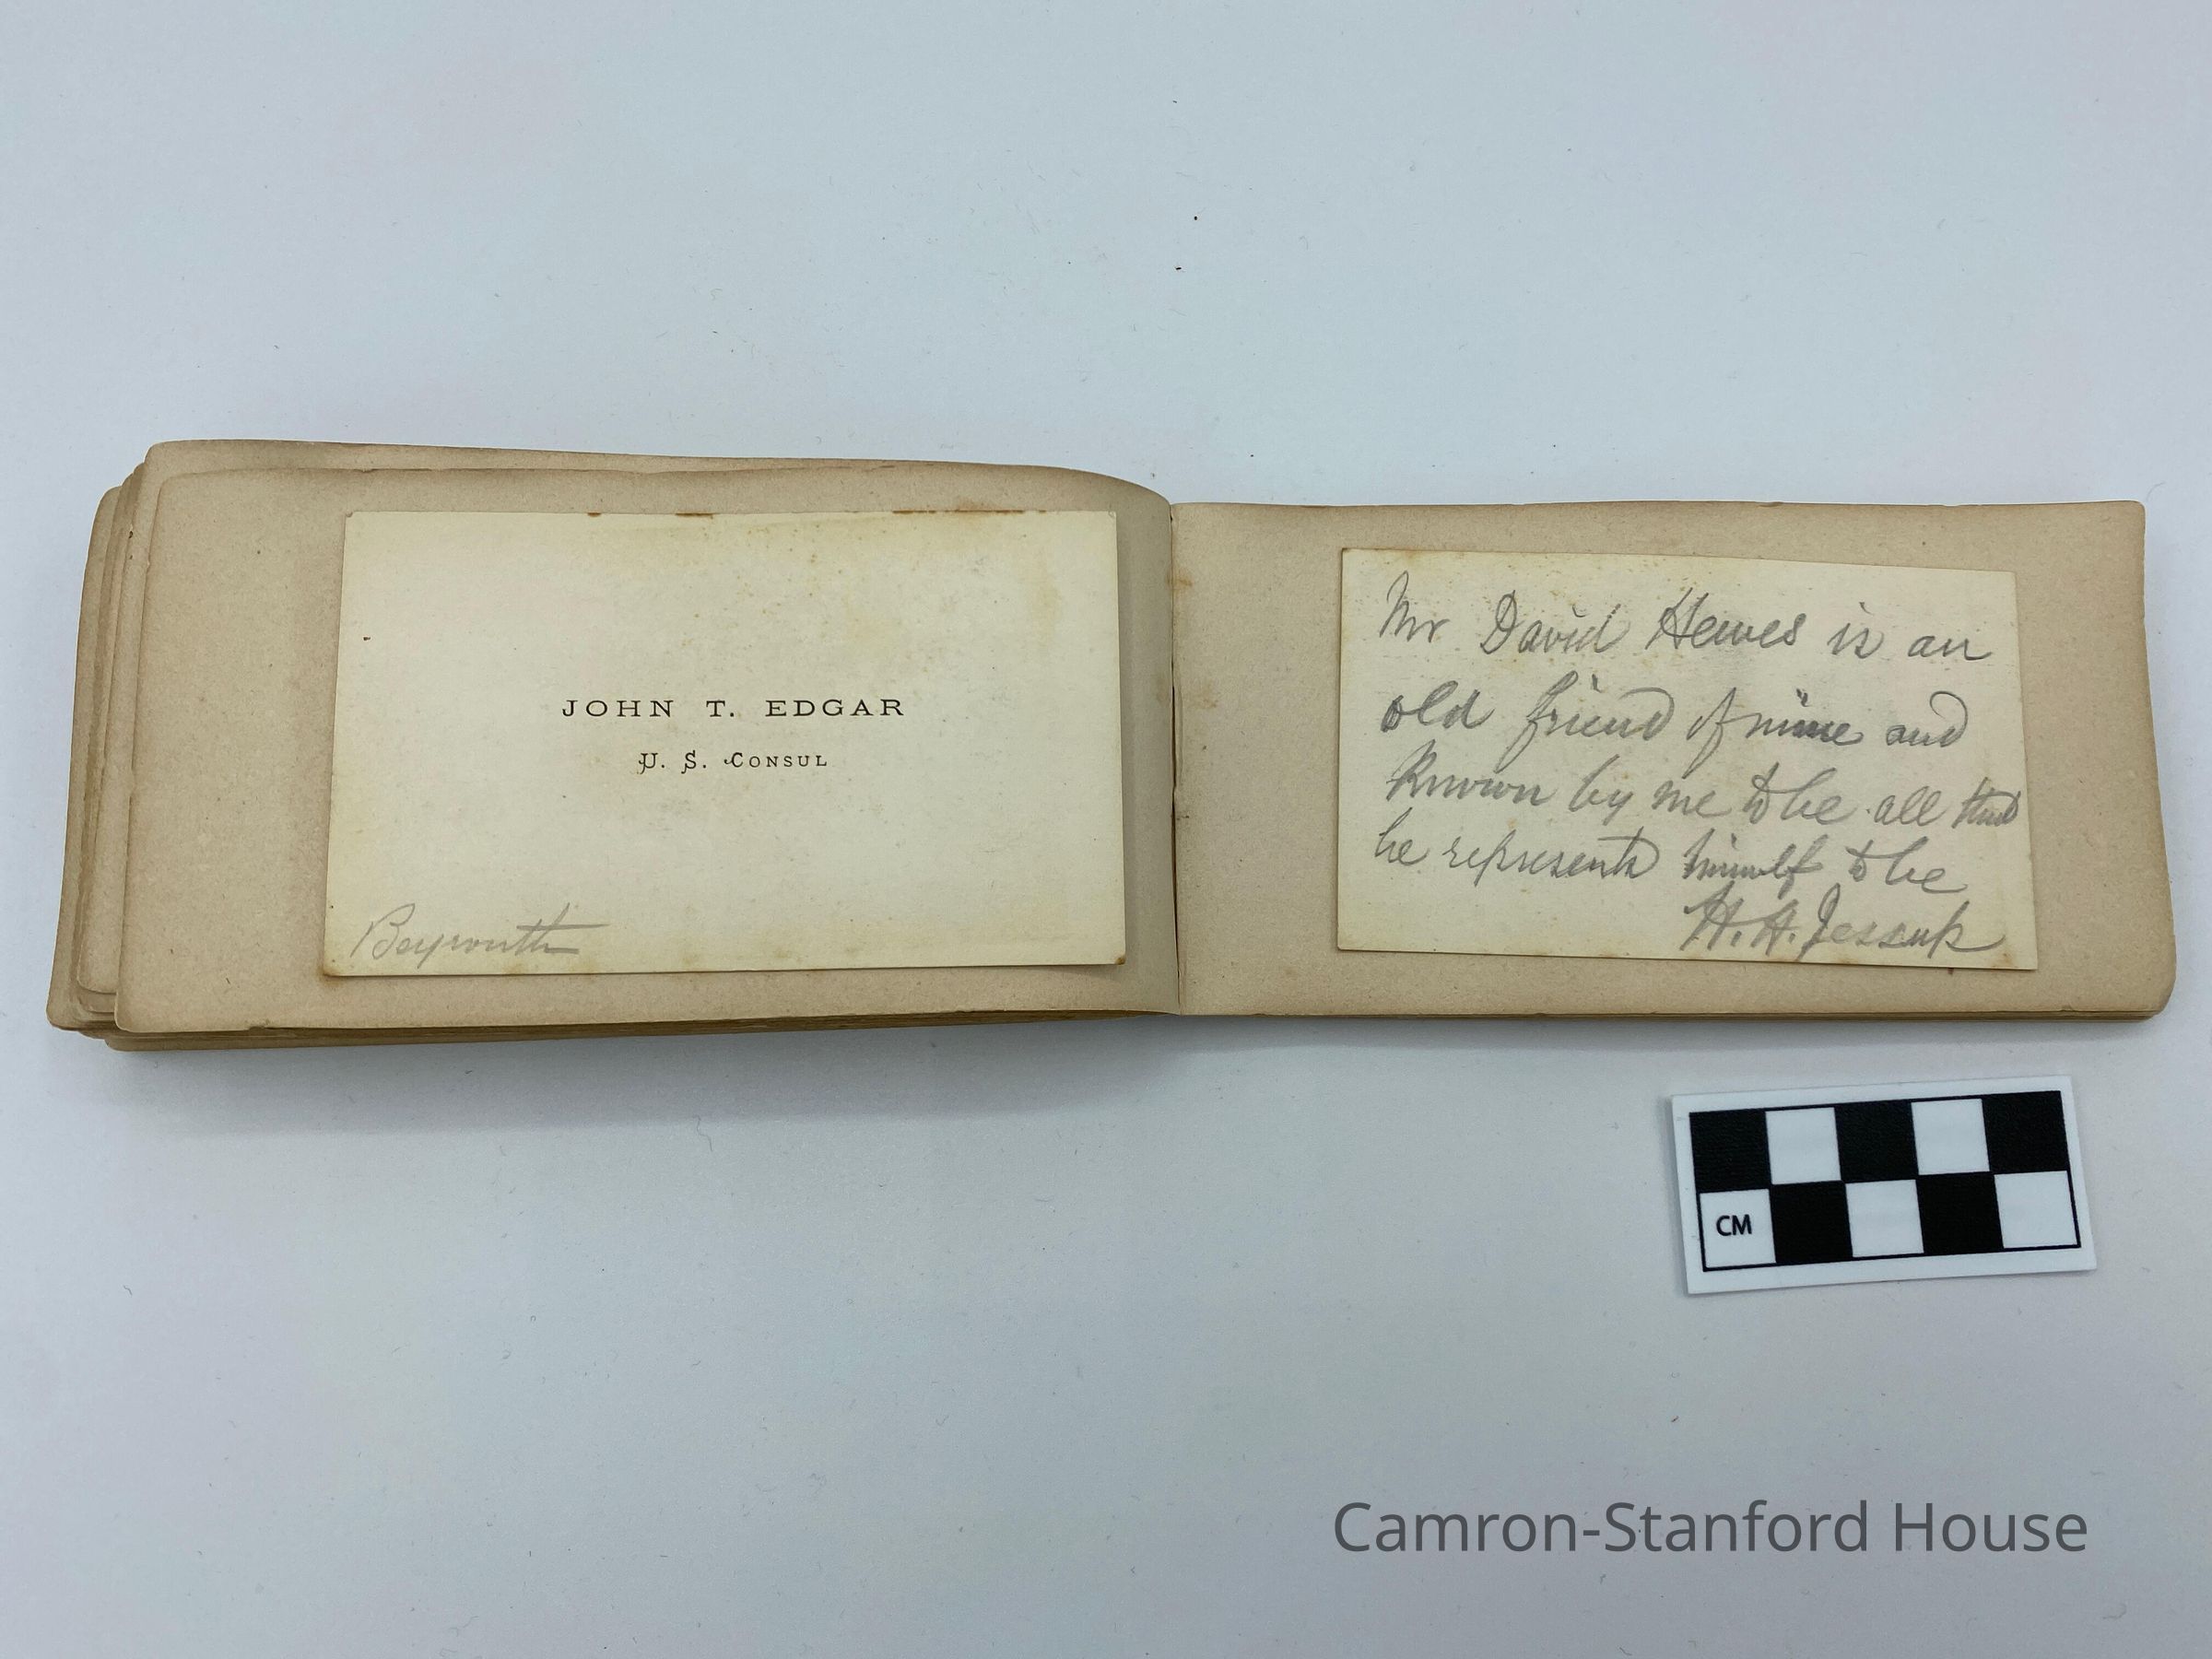 JOHN T. EDGAR
U. S. CONSUL
Beyrouth
Mr David Hewes is an
old friend of mine and
Known by me to be all that
he represents himself to be
H. H. Jessup
CM
Camron-Stanford House